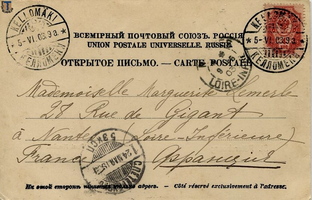 KELLOMÄKI
5·VI.03 9 a
КЕЛЛОМЯКИ
ВСЕМІРНЫЙ ПОЧТОВЫЙ СОЮЗЪ. РОССІЯ
UNION POSTALE UNIVERSELLE. RUSSIE
ОТКРЫТОЕ ПИСЬМО. — CARTE POSTALE
LOIRE-IN
Mademoiselle Marguerite
28 Rue de Gigant
à Nantes Loire-Inférieure
France
На этой сторонѣ пишется только адресъ. - Côté réservé exclusivement à l'adresse.